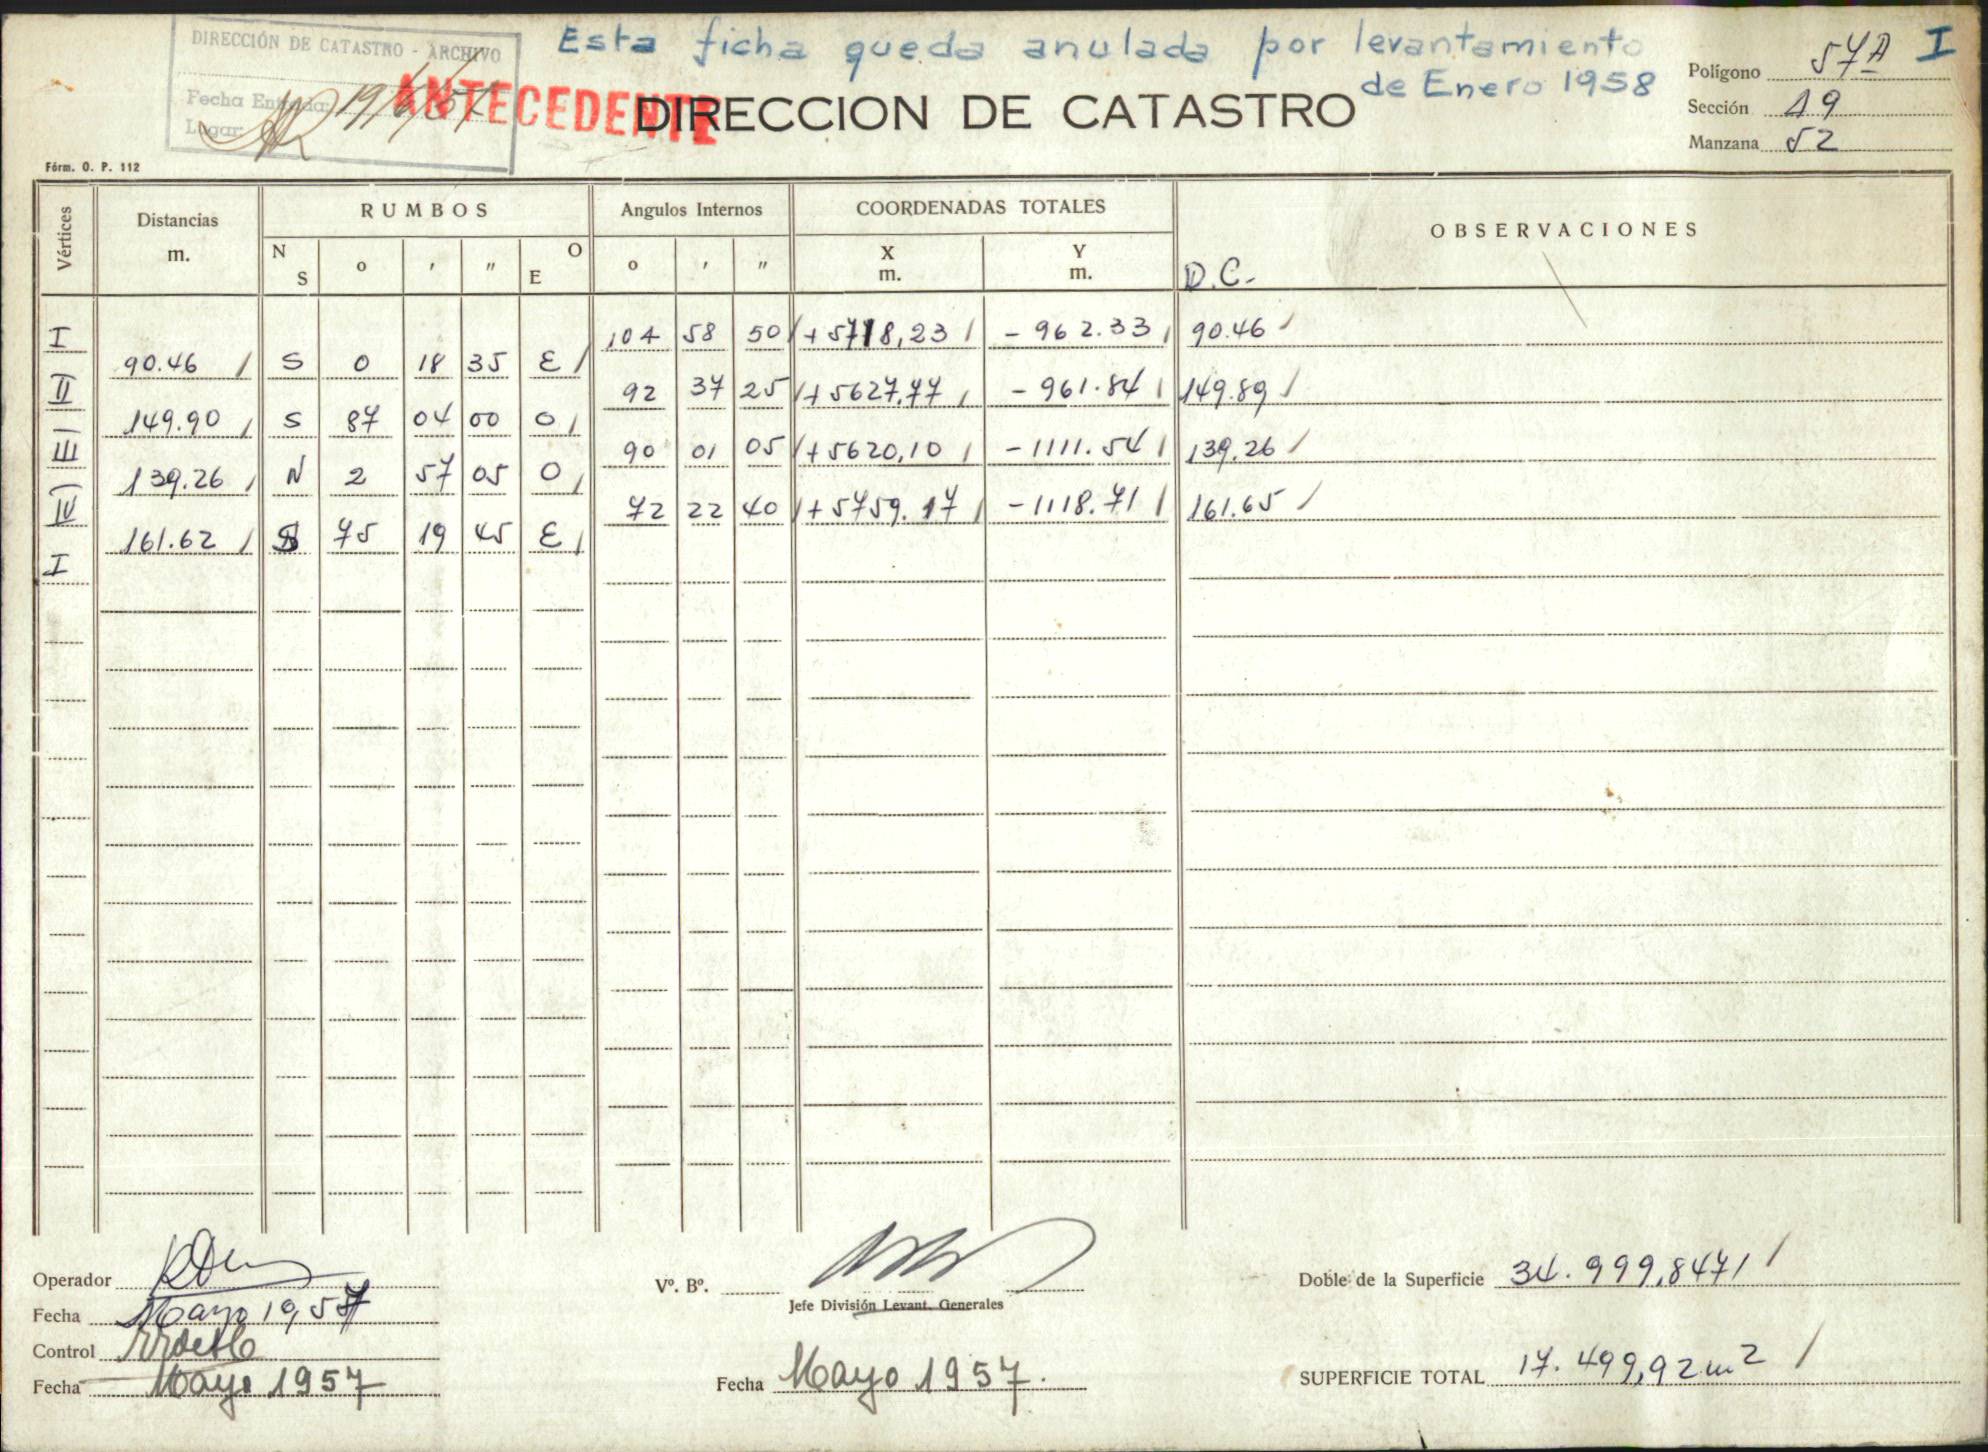 DIRECCIÓN DE CATASTRO - ARCHIVO
Fecha Entrada:
Lugar:
ANTECEDENTE
Esta ficha queda anulada por levantamiento
de Enero 1958
DIRECCION DE CATASTRO
Polígono 57A I
Sección 19
Manzana 52
Fórm. O. P. 112
Vértices
Distancias
m.
RUMBOS
N S
o
′
″
O E
Angulos Internos
o
′
″
COORDENADAS TOTALES
X
m.
Y
m.
OBSERVACIONES
D.C.
I 104 58 50 +5718,23 -962.33 90.46
90.46 S 0 18 35 E
II 92 37 25 +5627,77 -961.84 149.89
149.90 S 87 04 00 O
III 90 01 05 +5620,10 -1111.54 139.26
139.26 N 2 57 05 O
IV 72 22 40 +5759.17 -1118.71 161.65
161.62 S 75 19 45 E
I
Operador
Fecha Mayo 1957
Control
Fecha Mayo 1957
Vº. Bº.
Jefe División Levant. Generales
Fecha Mayo 1957.
Doble de la Superficie 34.999,8471
SUPERFICIE TOTAL 17.499,92 m2